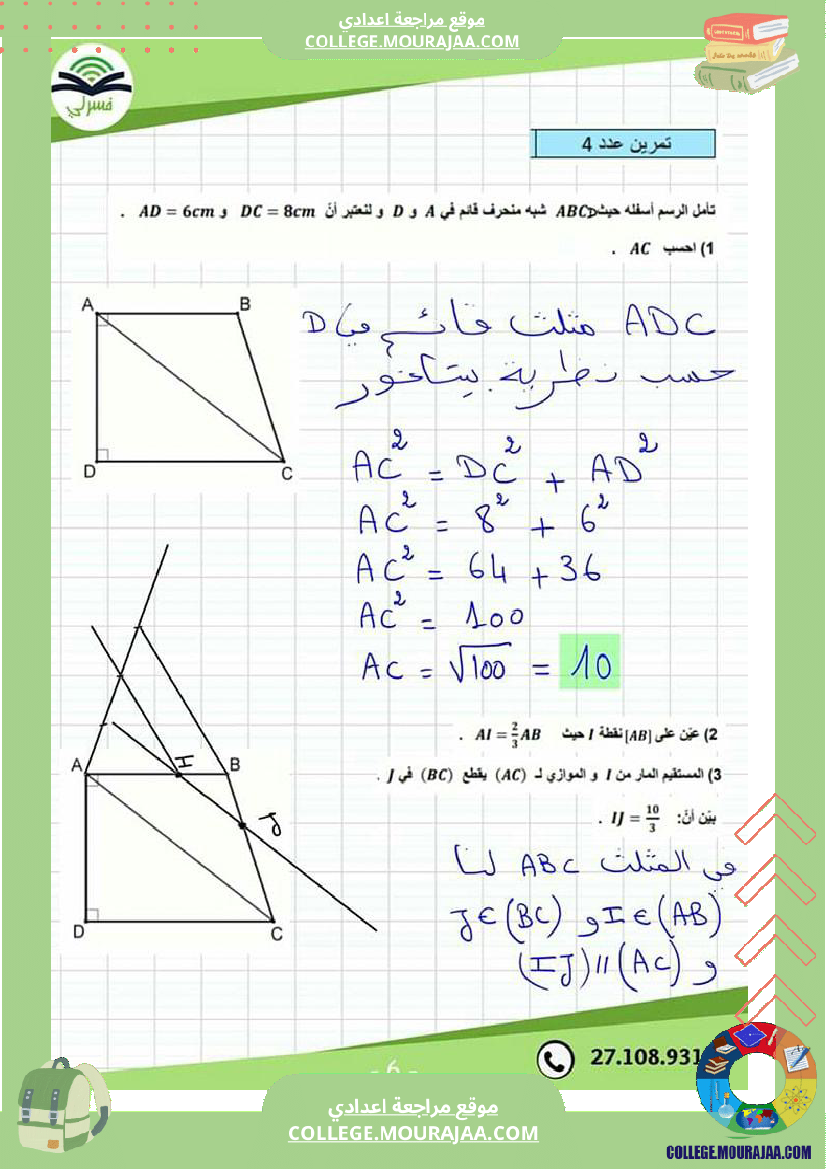 موقع مراجعة اعدادي
COLLEGE.MOURAJAA.COM
فسرلي
تمرين عدد 4
تأمل الرسم أسفله حيث ABCD شبه منحرف قائم في A و D و لنعتبر أنّ DC = 8cm و AD = 6cm .
1) احسب AC .
A B
D C
ADC مثلث قائم في D
حسب نظرية بيتاغور
AC² = DC² + AD²
AC² = 8² + 6²
AC² = 64 + 36
AC² = 100
AC = √100 = 10
2) عيّن على [AB] نقطة I حيث AI = 2/3 AB .
3) المستقيم المار من I و الموازي لـ (AC) يقطع (BC) في J .
بيّن أنّ: IJ = 10/3 .
A I B
J
D C
في المثلث ABC لنا
I ∈ (AB) و J ∈ (BC)
و (IJ) // (AC)
- 6 -
27.108.931
موقع مراجعة اعدادي
COLLEGE.MOURAJAA.COM
COLLEGE.MOURAJAA.COM